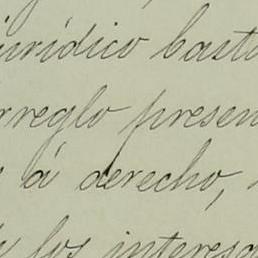 jurídico basta
arreglo presen
á derecho,
los interesa